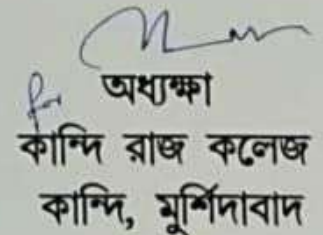 for
অধ্যক্ষা
কান্দি রাজ কলেজ
কান্দি, মুর্শিদাবাদ